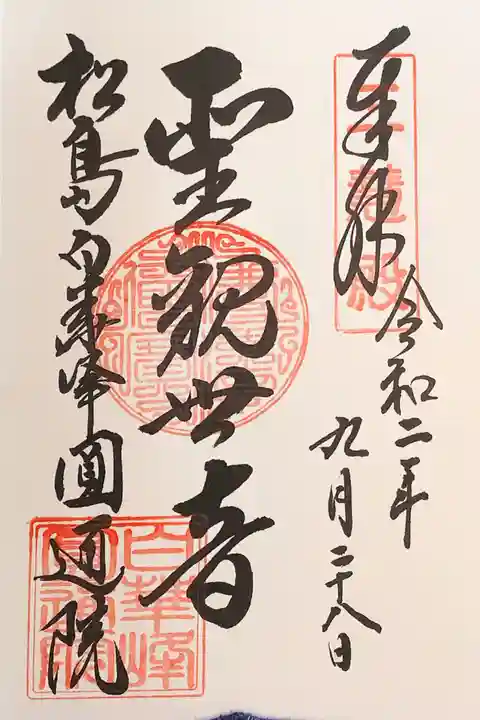 奉拝
三慧殿
令和二年
九月二十八日
聖観世音
松島白華峰圓通院
白華峰
圓通院